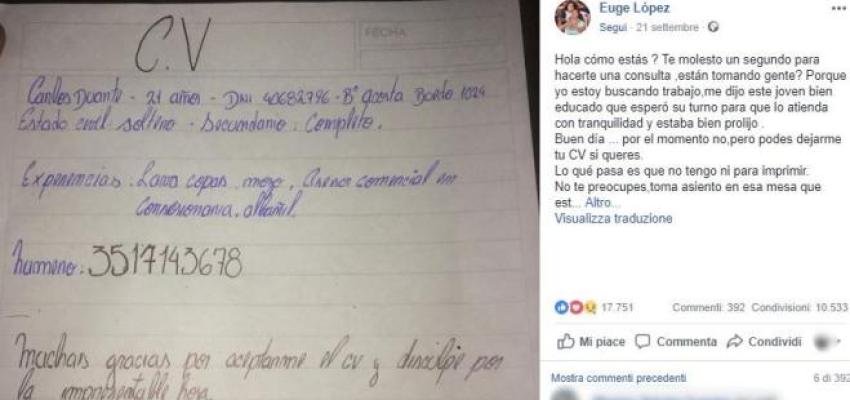 C.V
FECHA
Carlos Duarte - 21 años - DNI 40682796 - Bº acosta Bordo 1024
Estado civil soltero - Secundario: Completo.
Experiencias: Lava copas, mozo, Asesor comercial en
Concesionaria, albañil.
humero: 3517143678
Muchas gracias por aceptarme el cv y disculpe por
la impresentable hoja.
Euge López
Segui · 21 settembre ·
Hola cómo estás ? Te molesto un segundo para
hacerte una consulta ,están tomando gente? Porque
yo estoy buscando trabajo,me dijo este joven bien
educado que esperó su turno para que lo atienda
con tranquilidad y estaba bien prolijo .
Buen día ... por el momento no,pero podes dejarme
tu CV si queres.
Lo qué pasa es que no tengo ni para imprimir.
No te preocupes,toma asiento en esa mesa que
est... Altro...
Visualizza traduzione
17.751 Commenti: 392 Condivisioni: 10.533
Mi piace Commenta Condividi
Mostra commenti precedenti 6 di 392